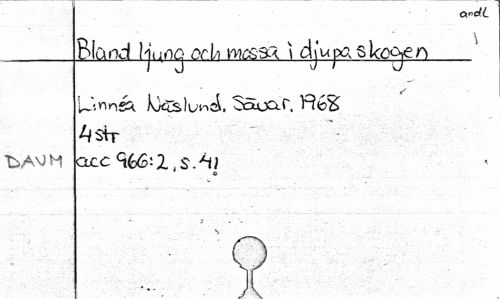 andl
Bland ljung och mossa i djupa skogen
Linnéa Näslund, Sävar, 1968
4 str
DAUM acc 966:2, s. 4!